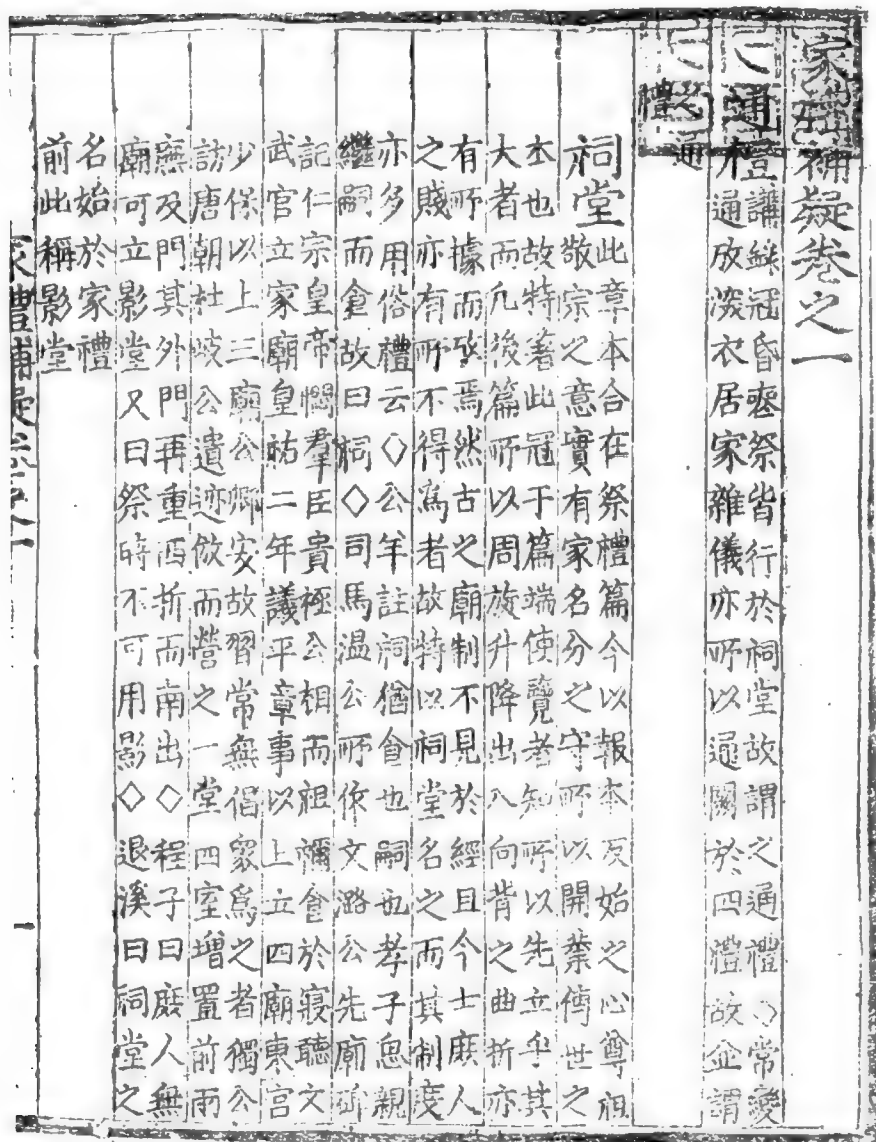 家禮補疑卷之一
通
豈講錄冠昏喪祭皆行於祠堂故謂之通禮◇常變
通放深衣居家雜儀亦所以通關於四禮故企謂
之通
禮
祠堂
此章本合在祭禮篇今以報本反始之心尊祖
敬宗之意實有家名分之守所以開業傳世之
本也故特著此冠于篇端使覽者知所以先立乎其
大者而凡後篇所以周旋升降出入向背之曲折亦
有所據而攷焉然古之廟制不見於經且今士庶人
之賤亦有所不得爲者故特以祠堂名之而其制度
亦多用俗禮云◇公羊註祠猶食也嗣也孝子思親
繼嗣而食故曰祠◇司馬溫公所作文潞公先廟碑
記仁宗皇帝憫羣臣貴極公相而祖禰食於寢聽文
武官立家廟皇祐二年議平章事以上立四廟東宮
少保以上三廟公卿安故習常無倡衆爲之者獨公
訪唐朝杜岐公遺迹倣而營之一堂四室增置前兩
廡及門其外門再重西折而南出◇程子曰庶人無
廟可立影堂又曰祭時不可用影◇退溪曰祠堂之
名始於家禮
前此稱影堂
家禮補疑卷之一
一